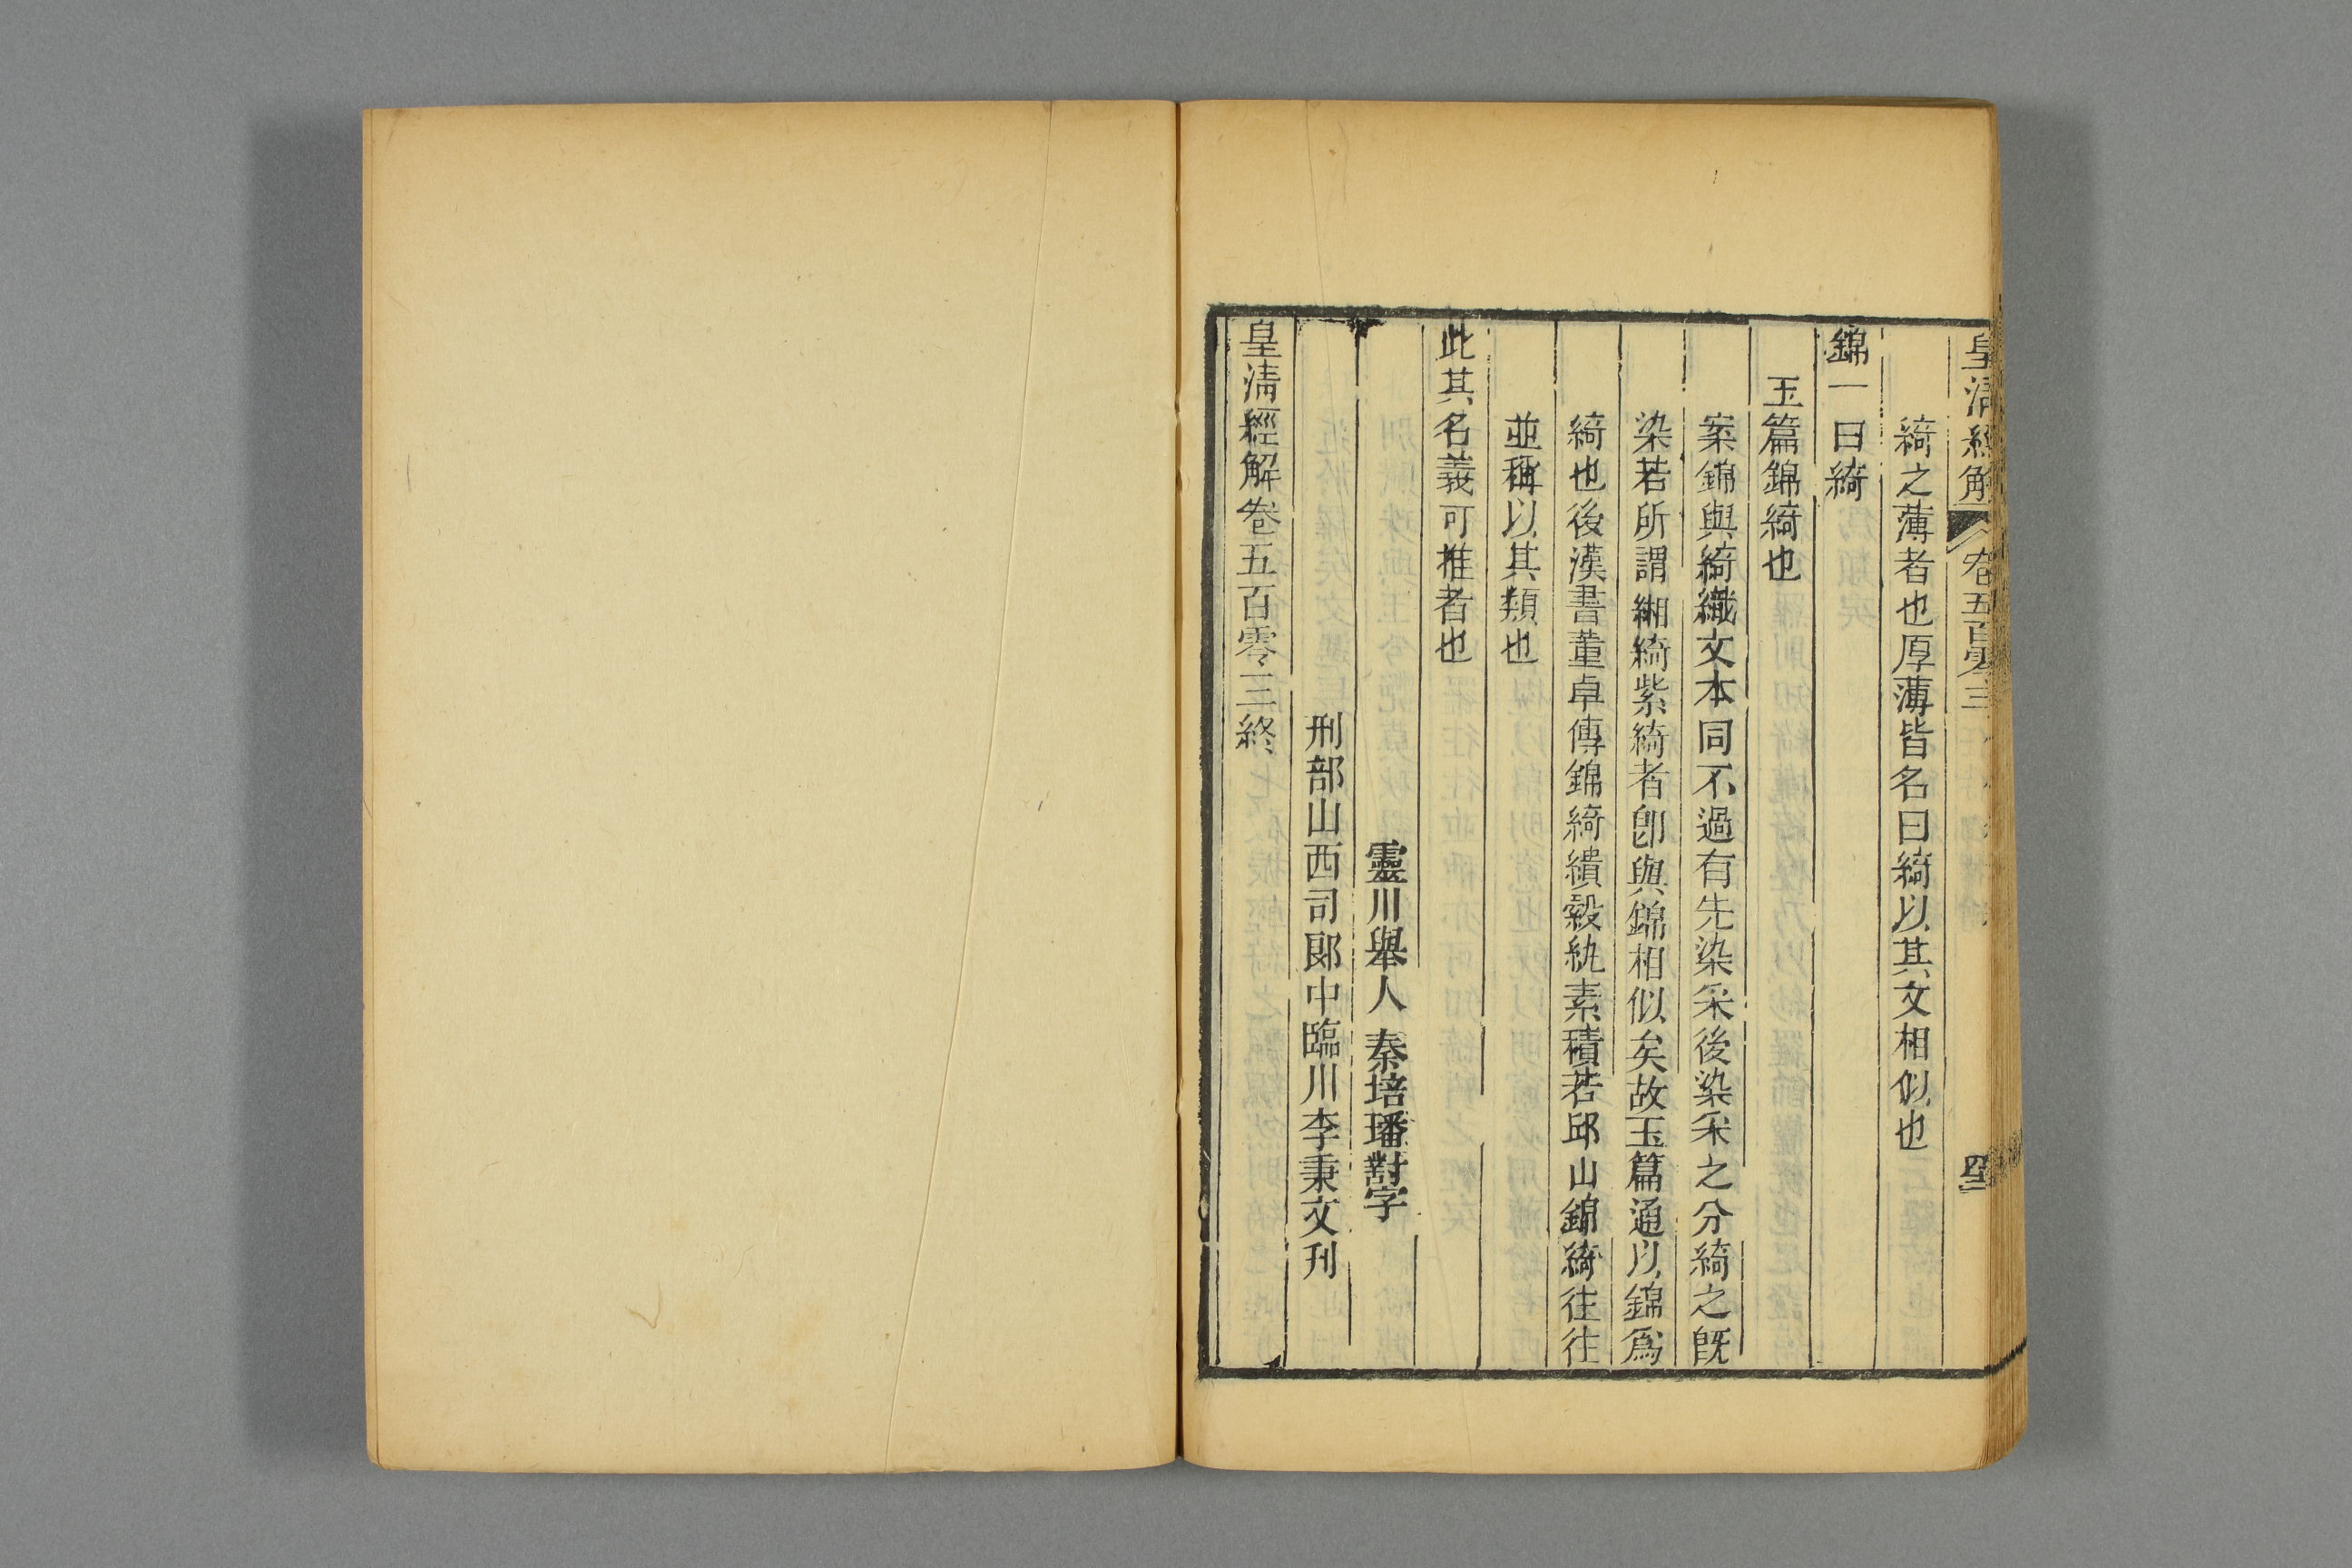 皇清經解 卷五百零三
綺之薄者也厚薄皆名曰綺以其文相似也
錦一曰綺
玉篇錦綺也
案錦與綺織文本同不過有先染采後染采之分綺之旣
染若所謂緗綺紫綺者卽與錦相似矣故玉篇通以錦爲
綺也後漢書董卓傳錦綺繢縠紈素積若邱山錦綺往往
並稱以其類也
此其名義可推者也
靈川舉人秦培璠對字
刑部山西司郎中臨川李秉文刊
皇清經解卷五百零三終